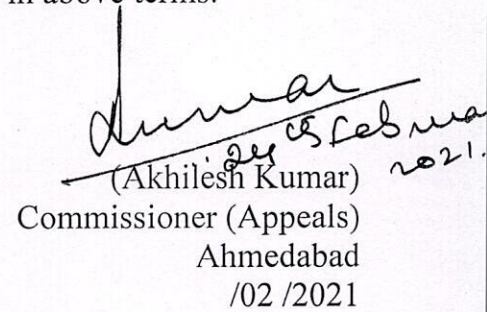 in above terms.
Kumar
24th Februa
2021.
(Akhilesh Kumar)
Commissioner (Appeals)
Ahmedabad
/02 /2021